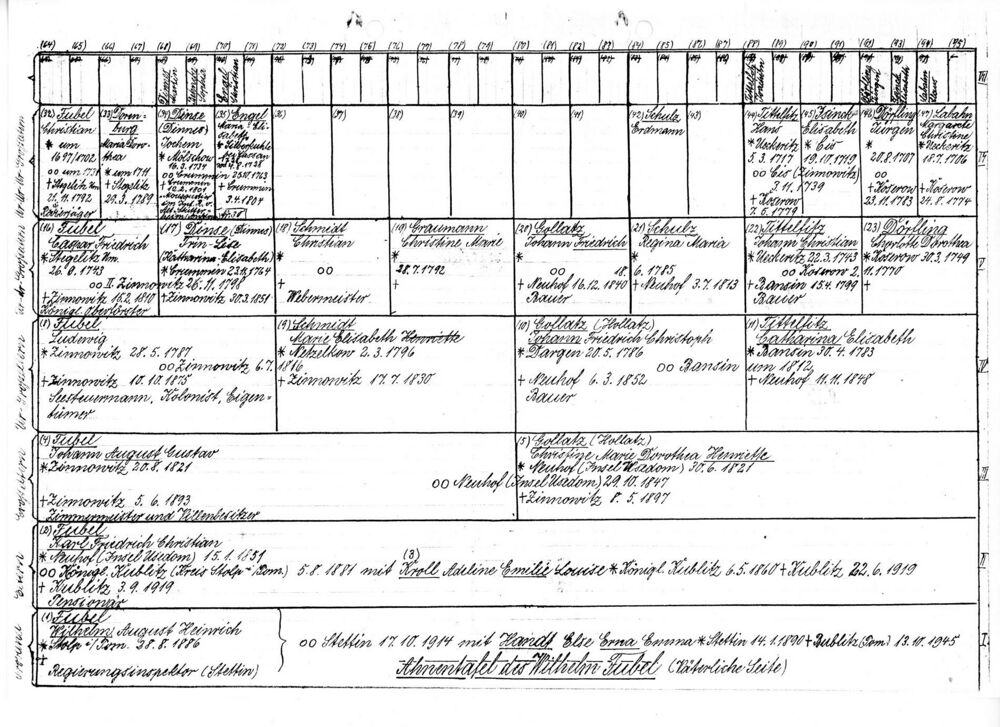 (64) (65) (66) (67) (68) (69) (70) (71) (72) (73) (74) (75) (76) (77) (78) (79) (80) (81) (82) (83) (84) (85) (86) (87) (88) (89) (90) (91) (92) (93) (94) (95)
VII
(32) Tubel
Christian
* um
1697/1702
oo um 1731
+ Stegelitz Um.
21.11.1792
(33) Doren-
burg
Maria Doro-
thea
* um 1711
+ Stegelitz
29.3.1789
(34) Dinse
(Dinnes)
Jochem
* Mölschow
16.3.1734
oo Crummin 25.10.1763
+ Crummin
12.2.1801
(35) Engel
Maria Eli-
sabeth
+ Crummin
3.4.1804
(36)
(37)
(38)
(39)
(40)
(41)
(42) Schulz
Erdmann
(43)
(44) Tittelfitz
Hans
* Ueckeritz
5.3.1717
oo Eis (Zinnowitz)
3.11.1739
+ Koserow
7.5.1779
(45)
Elisabeth
* Eis
19.10.1719
(46) Dörfling
Juergen
* 20.8.1707
oo
+ Koserow
23.11.1783
(47) Labahn
Margarete
Christine
* Ueckeritz
18.7.1706
+ Koserow
24.8.1774
VI
(16) Tubel
Caspar Friedrich
* Stegelitz Um.
26.0.1743
oo II. Zinnowitz 26.11.1798
+ Zinnowitz 15.2.1810
Königl. Oberförster
(17) Dinse (Dinnes)
Trin-Lise
(Katharina-Elisabeth)
* Crummin 23.11.1764
+ Zinnowitz 30.3.1851
(18) Schmidt
Christian
*
oo
+
Webermeister
(19) Graumann
Christine Marie
*
28.7.1792
+
(20) Collatz
Johann Friedrich
*
oo 18. 6.1785
+ Neuhof 16.12.1840
Bauer
(21) Schulz
Regina Maria
*
+ Neuhof 3.7.1813
(22) Tittelfitz
Johann Christian
* Ueckeritz 22.3.1743
oo Koserow 2.11.1770
+ Bansin 15.4.1799
Bauer
(23) Dörfling
Charlotte Dorothea
* Koserow 30.3.1749
+
(8) Tubel
Ludwig
* Zinnowitz 28.5.1787
oo Zinnowitz 6.7.1816
+ Zinnowitz 10.10.1875
Seesteuermann, Kolonist, Eigen-
tümer
(9) Schmidt
Marie Elisabeth Henriette
* Netzelkow 2.3.1796
+ Zinnowitz 17.7.1830
(10) Collatz (Hollatz)
Johann Friedrich Christoph
* Dargen 20.5.1786
oo Bansin um 1812
+ Neuhof 6.3.1852
Bauer
(11) Tittelfitz
Catharina Elisabeth
* Bansin 30.4.1783
+ Neuhof 11.11.1848
IV
(4) Tubel
Johann August Gustav
* Zinnowitz 20.8.1821
oo Neuhof (Insel Usedom) 29.10.1847
+ Zinnowitz 5.6.1893
Zimmermeister und Villenbesitzer
(5) Collatz (Hollatz)
Christine Marie Dorothea Henriette
* Neuhof (Insel Usedom) 30.6.1821
+ Zinnowitz 8.5.1897
III
(2) Tubel
Karl Friedrich Christian
* Neuhof (Insel Usedom) 15.1.1851
(3)
oo Königl. Kublitz (Kreis Stolp i/Pom.) 5.8.1881 mit Kroll Adeline Emilie Louise * Königl. Kublitz 6.5.1860 + Kublitz 22.6.1919
+ Kublitz 3.9.1919
Pensionär
II
(1) Tubel
Wilhelm August Heinrich
* Stolp i/Pom. 28.8.1886
oo Stettin 17.10.1914 mit Handt Else Erna Emma * Stettin 14.1.1890 + Bublitz (Pom.) 13.10.1945
+
Regierungsinspektor (Stettin)
I
Ahnentafel des Wilhelm Tubel (Väterliche Seite)